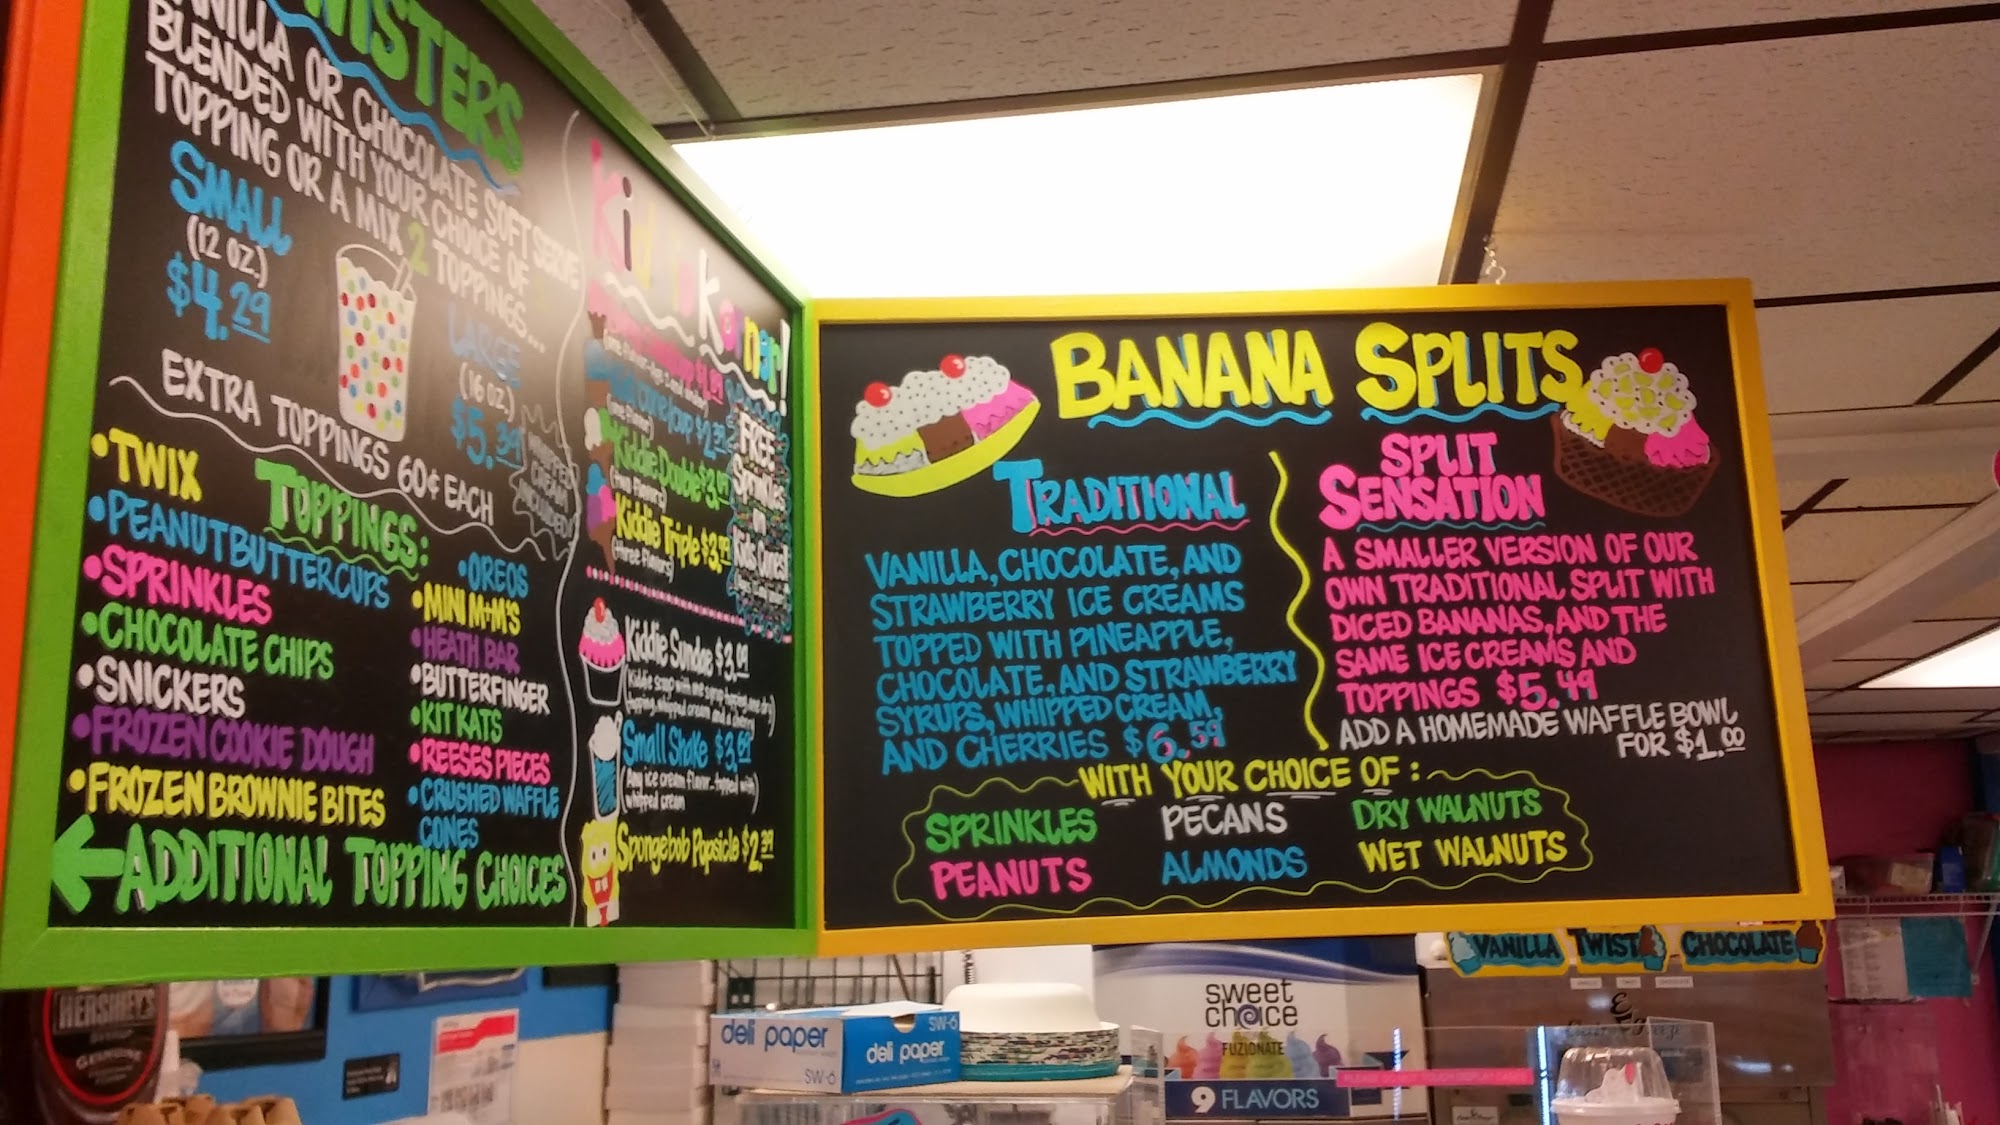 WISTERS
VANILLA OR CHOCOLATE SOFT SERVE
BLENDED WITH YOUR CHOICE OF
TOPPING OR A MIX 2 TOPPINGS...
SMALL
(12 OZ.)
$4.29
LARGE
(16 OZ.)
$5.39
WHIPPED
CREAM
INCLUDED
EXTRA TOPPINGS 60¢ EACH
TOPPINGS:
•TWIX
•PEANUTBUTTERCUPS
•SPRINKLES
•CHOCOLATE CHIPS
•SNICKERS
•FROZEN COOKIE DOUGH
•FROZEN BROWNIE BITES
•OREOS
•MINI M+M'S
•HEATH BAR
•BUTTERFINGER
•KIT KATS
•REESES PIECES
•CRUSHED WAFFLE
CONES
ADDITIONAL TOPPING CHOICES
Korner!
(one flavor)
Kiddie Double $3.09
(two flavors)
Kiddie Triple $3.99
(three flavors)
FREE
Sprinkles
on
Kids Cones!
Kiddie Sundae $3.09
(Kiddie scoop with one syrup topping, one dry
topping, whipped cream and a cherry)
Small Shake $3.09
(Any ice cream flavor...topped with
whipped cream
Spongebob Popsicle $2.39
BANANA SPLITS
TRADITIONAL
VANILLA, CHOCOLATE, AND
STRAWBERRY ICE CREAMS
TOPPED WITH PINEAPPLE,
CHOCOLATE, AND STRAWBERRY
SYRUPS, WHIPPED CREAM,
AND CHERRIES $6.59
SPLIT
SENSATION
A SMALLER VERSION OF OUR
OWN TRADITIONAL SPLIT WITH
DICED BANANAS, AND THE
SAME ICE CREAMS AND
TOPPINGS $5.49
ADD A HOMEMADE WAFFLE BOWL
FOR $1.00
WITH YOUR CHOICE OF:
SPRINKLES PECANS DRY WALNUTS
PEANUTS ALMONDS WET WALNUTS
VANILLA TWIST CHOCOLATE
HERSHEY'S
GENUINE
deli paper
SW-6
deli paper
SW-6
sweet
choice
FUZIONATE
9 FLAVORS